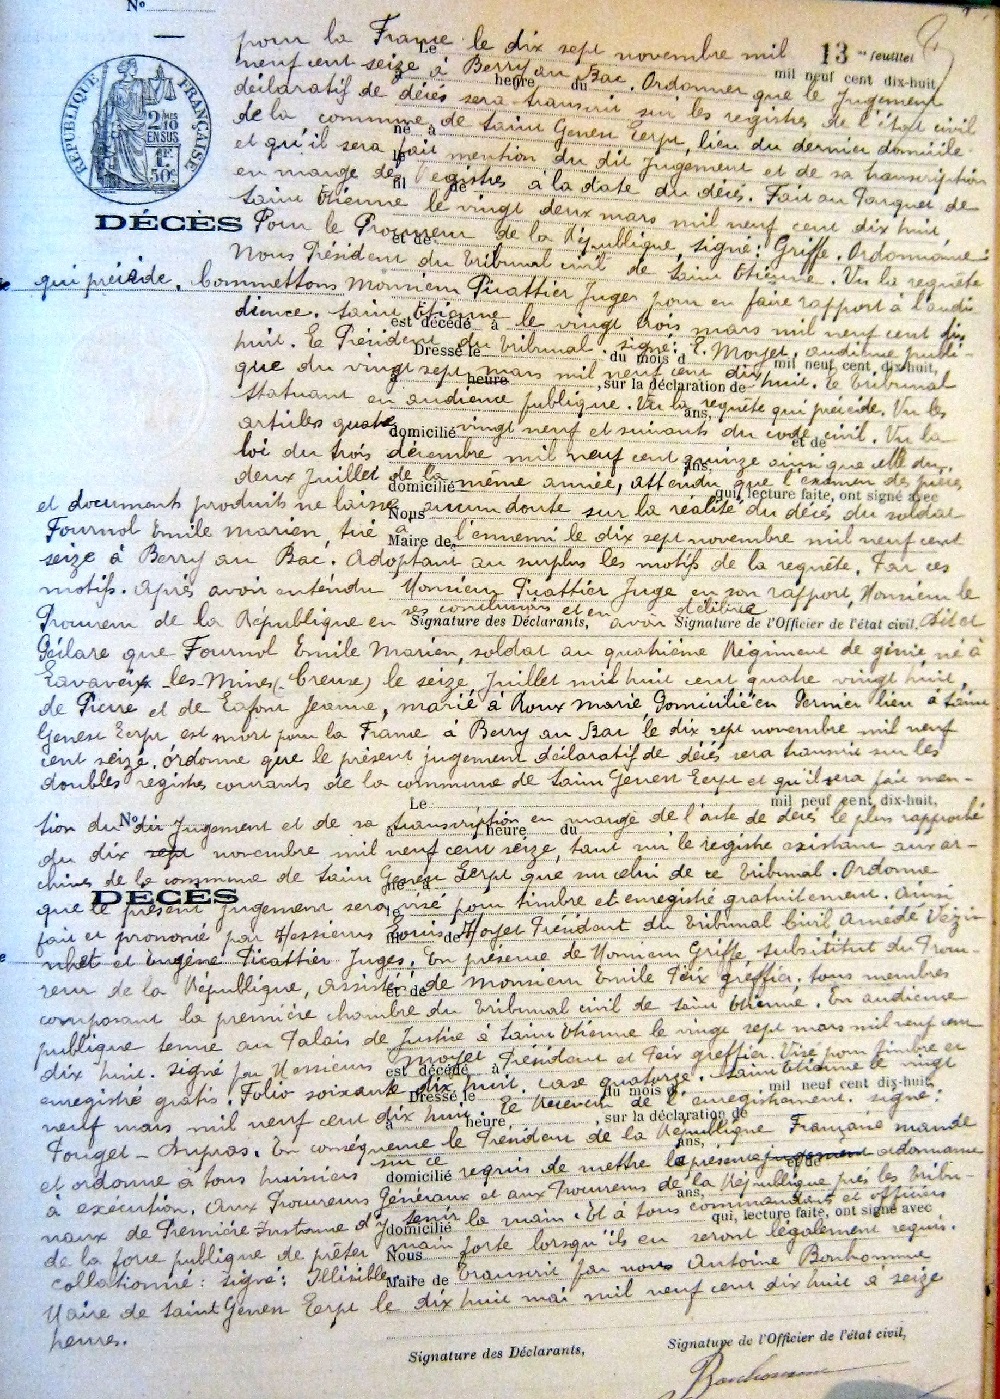 N°
13me feuillet
RÉPUBLIQUE FRANÇAISE
2/10mes EN SUS
50c
pour la France le dix sept novembre mil
neuf cent seize à Berry au Bac. Ordonner que le Jugement
déclaratif de décès sera transcrit sur les registres de l'état civil
de la commune de Saint Genest Lerpt, lieu du dernier domicile
et qu'il sera fait mention du dit Jugement et de sa transcription
en marge des registres à la date du décès. Fait au Parquet de
Saint Etienne le vingt deux mars mil neuf cent dix huit,
DÉCÈS
Pour le Procureur de la République, signé: Griffe. Ordonnance:
Nous Président du Tribunal civil de Saint Etienne. Vu la requête
qui précède, Commettons Monsieur Picattier Juge pour en faire rapport à l'audi-
dience. Saint Etienne le vingt trois mars mil neuf cent dix
huit. Le Président du Tribunal signé: L. Moyet, audience publi-
que du vingt sept mars mil neuf cent dix huit. Le Tribunal
statuant en audience publique. Vu la requête qui précède, Vu les
articles quatre vingt neuf et suivants du code civil. Vu la
loi du trois décembre mil neuf cent quinze ainsi que celle du
deux Juillet de la même année, attendu que l'examen des pièces
et documents produits ne laisse aucun doute sur la réalité du décès du soldat
Fournol Emile Marien, tué à l'ennemi le dix sept novembre mil neuf cent
seize à Berry au Bac. Adoptant au surplus les motifs de la requête. Par ces
motifs. Après avoir entendu Monsieur Picattier Juge en son rapport, Monsieur le
Procureur de la République en ses conclusions et en avoir délibéré Dit et
Déclare que Fournol Emile Marien, soldat au quatrième Régiment de génie, né à
Lavaveix-les-Mines (Creuse) le seize Juillet mil huit cent quatre vingt huit,
de Pierre et de Lafont Jeanne, marié à Roux Marie, Domicilié en dernier lieu à Saint
Genest Lerpt est mort pour la France à Berry au Bac le dix sept novembre mil neuf
cent seize, ordonne que le présent jugement déclaratif de décès sera transcrit sur les
doubles registres courants de la commune de Saint Genest Lerpt et qu'il sera fait men-
tion du dit Jugement et de sa transcription en marge de l'acte de décès le plus rapproché
du dix sept novembre mil neuf cent seize, tant sur le registre existant aux ar-
chives de la commune de Saint Genest Lerpt que sur celui de ce Tribunal. Ordonne
DÉCÈS
que le présent Jugement sera visé pour timbre et enregistré gratuitement. Ainsi
fait et prononcé par Messieurs Louis Moyet Président du Tribunal Civil Amédé Vézi-
nhet et Eugène Picattier Juges, En présence de Monsieur Griffe, substitut du Procu-
reur de la République, assistés de Monsieur Emile Peix greffier, tous membres
composant la première chambre du Tribunal civil de Saint Etienne. En audience
publique tenue au Palais de Justice à Saint Etienne le vingt sept mars mil neuf cent
dix huit. Signé par Messieurs Moyet Président et Peix greffier. Visé pour timbre et
enregistré gratis. Folio soixante dix huit, case quatorze. Saint Etienne le vingt
neuf mars mil neuf cent dix huit. Le Receveur de l'enregistrement. signé:
Pouget-Dupras. En conséquence le Président de la République Française mande
et ordonne à tous huissiers sur ce requis de mettre la présente jugement ordonnance
à exécution. Aux Procureurs Généraux et aux Procureurs de la République près les Tribu-
naux de Première Instance d'y tenir la main. Et à tous commandants et officiers
de la force publique de prêter main forte lorsqu'ils en seront légalement requis.
collationné: signé: Illisible. Transcrit par nous Antoine Bonhomme
Maire de Saint Genest Lerpt le dix huit mai mil neuf cent dix huit à seize
heures.
Signature des Déclarants,
Signature de l'Officier de l'état civil,
Bonhomme